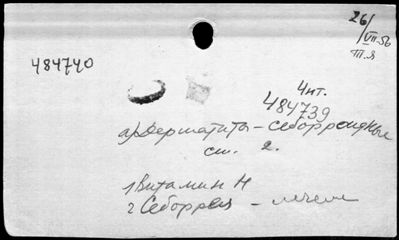 26/
VII-56
484740
4 чит.
484739
а) Дерматиты – себорройдные
см. 2.
1 Витамин Н
2 Себоррея – лечение